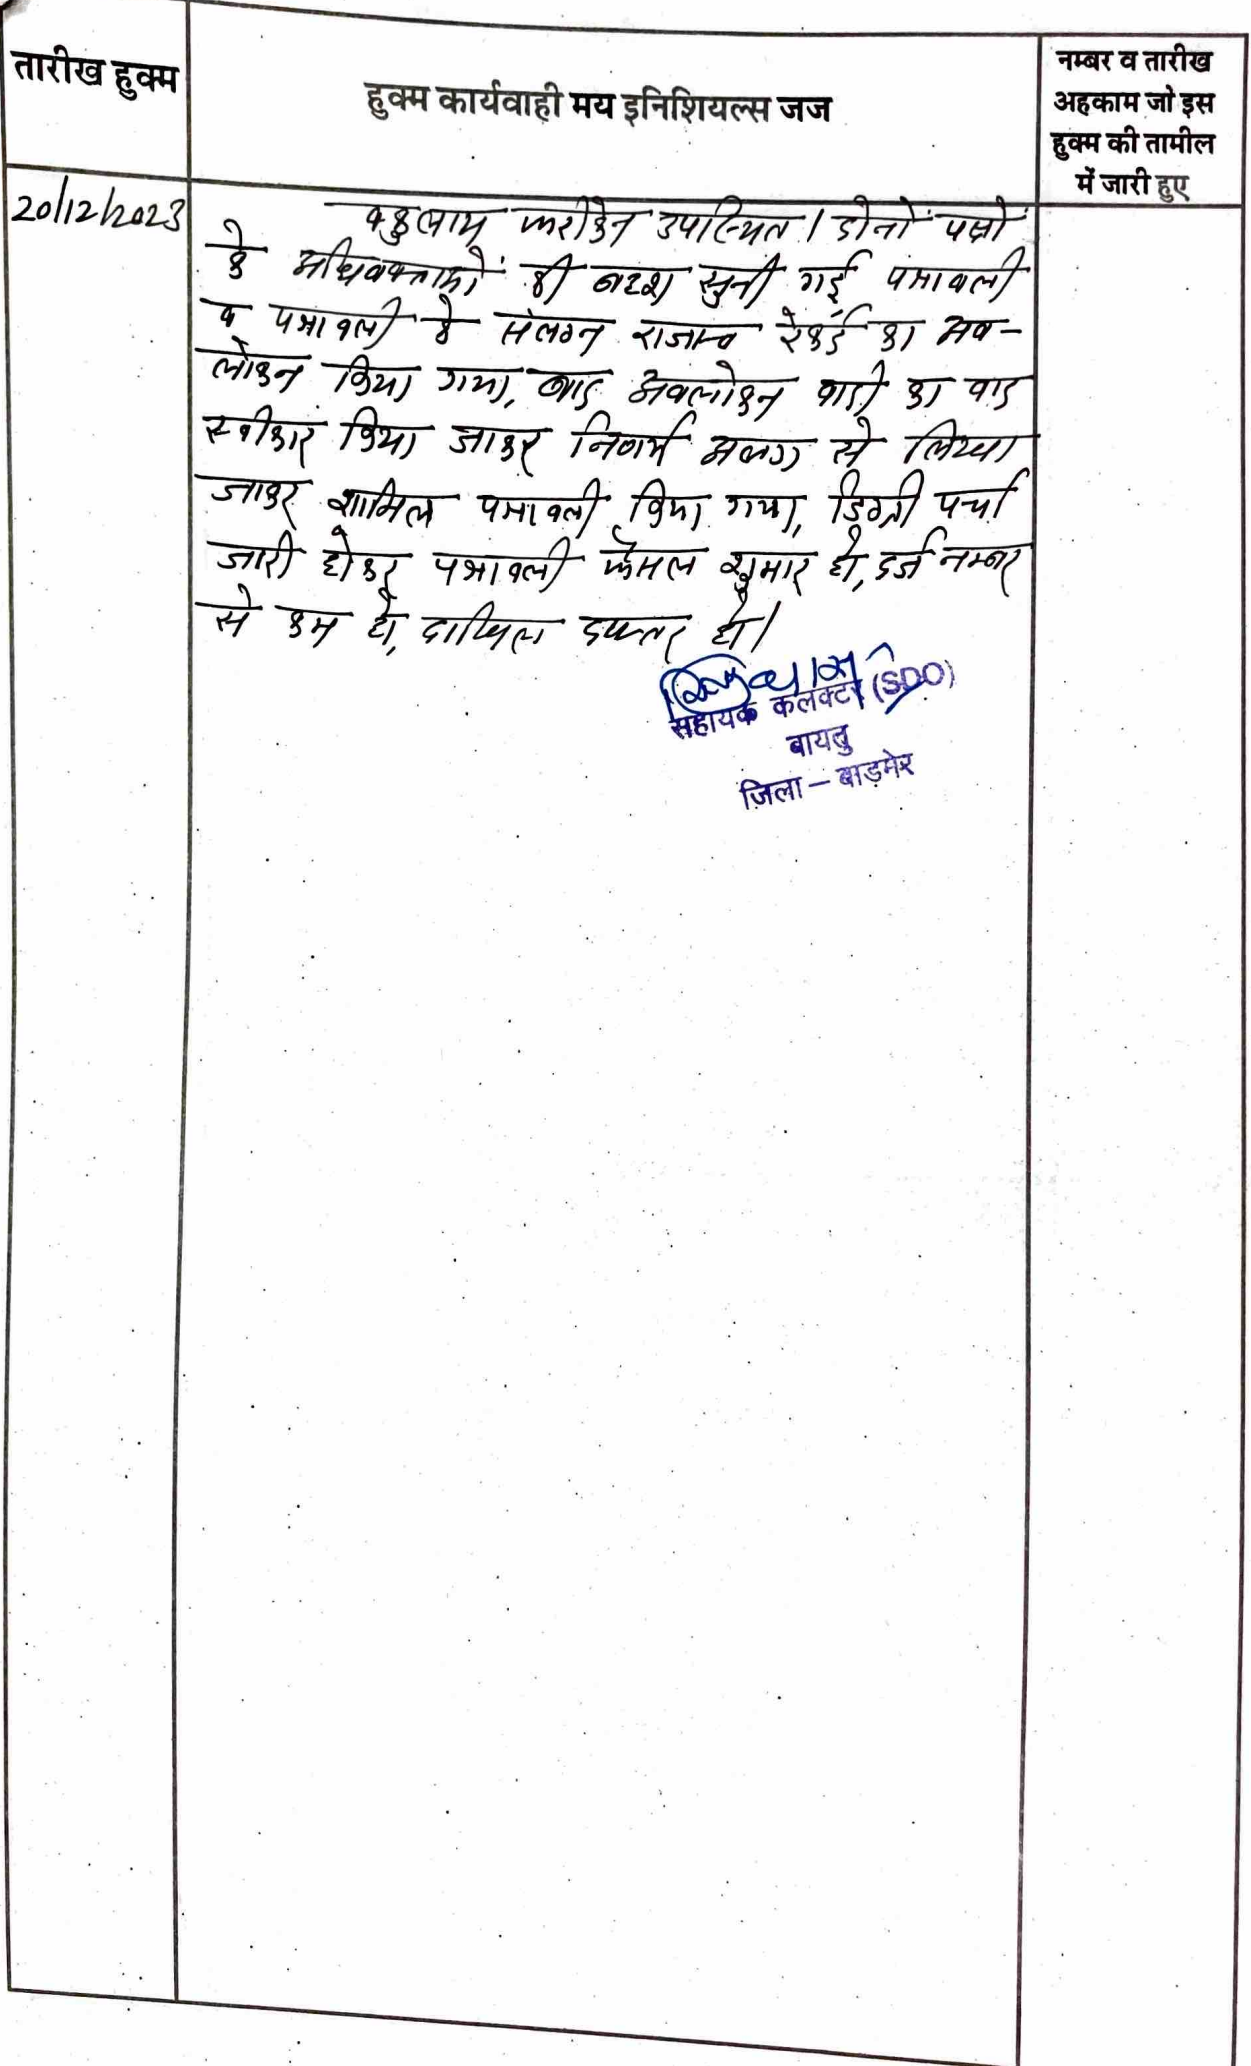 तारीख हुक्म
हुक्म कार्यवाही मय इनिशियल्स जज
नम्बर व तारीख
अहकाम जो इस
हुक्म की तामील
में जारी हुए
20/12/2023
वकुलाय फरीकेन उपस्थित। दोनों पक्षों
के अधिवक्ताओं की बहश सुनी गई पत्रावली
व पत्रावली के संलग्न राजस्व रेकर्ड का अव-
लोकन किया गया, बाद अवलोकन वादी का वाद
स्वीकार किया जाकर निर्णय अलग से लिखा
जाकर शामिल पत्रावली किया गया, डिग्री पर्चा
जारी होकर पत्रावली फैसल शुमार हो, दर्ज नम्बर
से कम हो, दाखिल दफ्तर हो।
सहायक कलक्टर (SDO)
बायतु
जिला – बाड़मेर